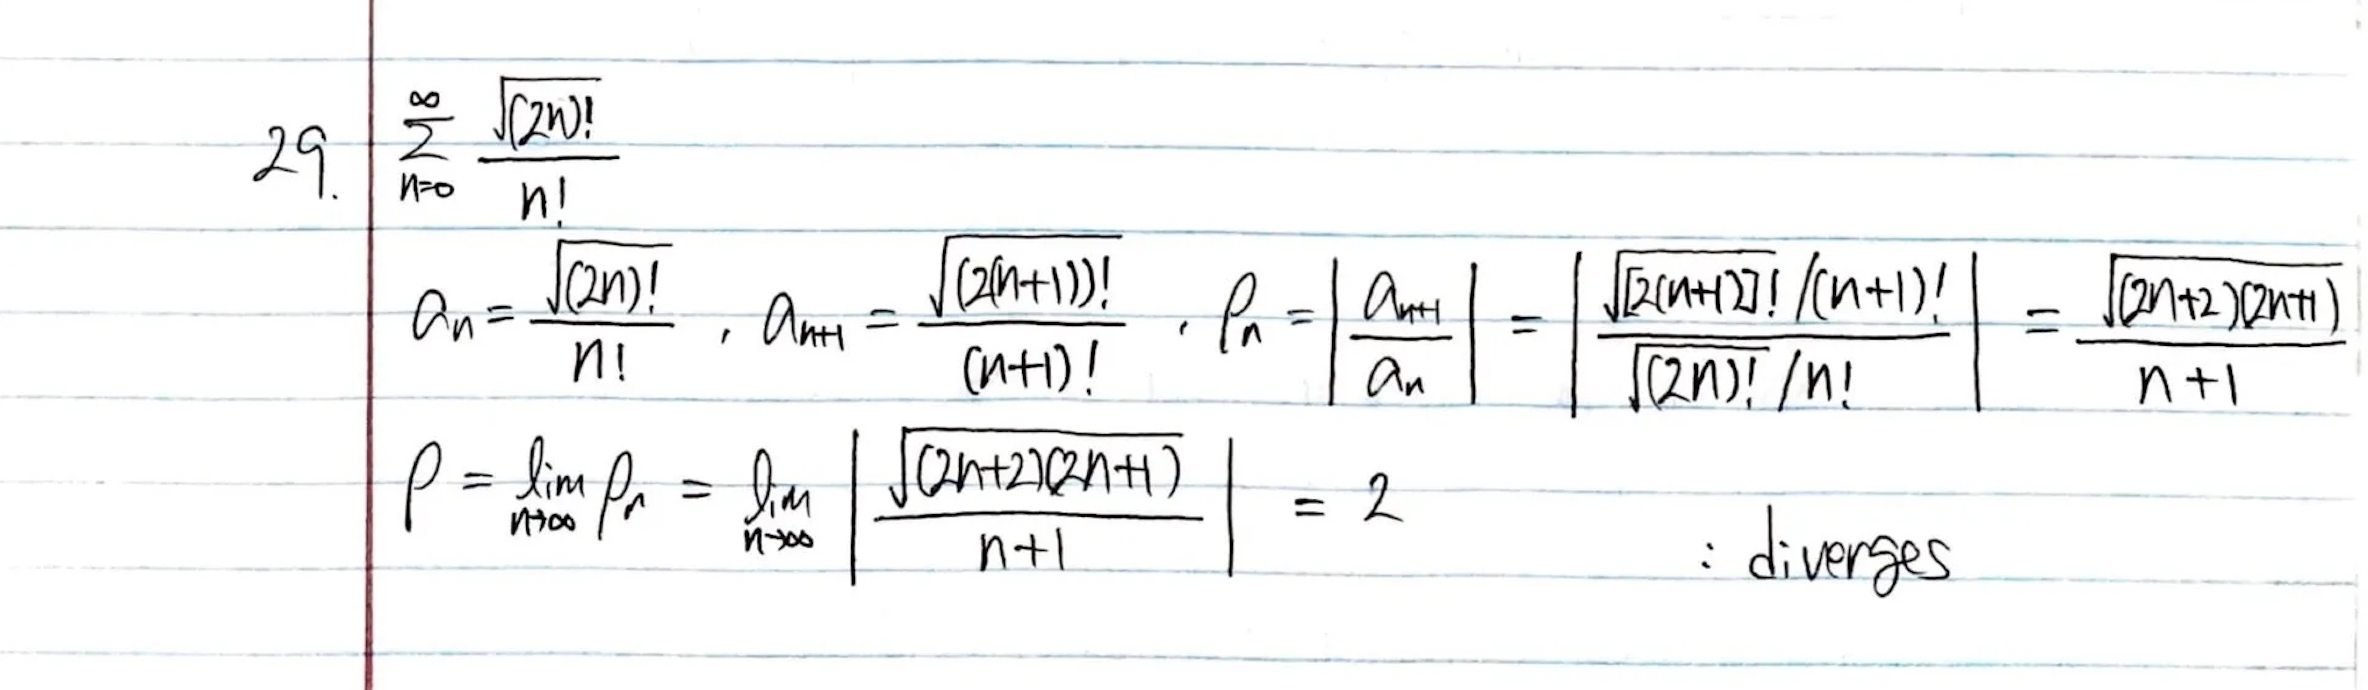 29. $\sum_{n=0}^{\infty} \frac{\sqrt{(2n)!}}{n!}$
$a_n = \frac{\sqrt{(2n)!}}{n!}$, $a_{n+1} = \frac{\sqrt{(2(n+1))!}}{(n+1)!}$, $\rho_n = \left| \frac{a_{n+1}}{a_n} \right| = \left| \frac{\sqrt{[2(n+1)]!}/(n+1)!}{\sqrt{(2n)!}/n!} \right| = \frac{\sqrt{(2n+2)(2n+1)}}{n+1}$
$\rho = \lim_{n \to \infty} \rho_n = \lim_{n \to \infty} \left| \frac{\sqrt{(2n+2)(2n+1)}}{n+1} \right| = 2$ : diverges